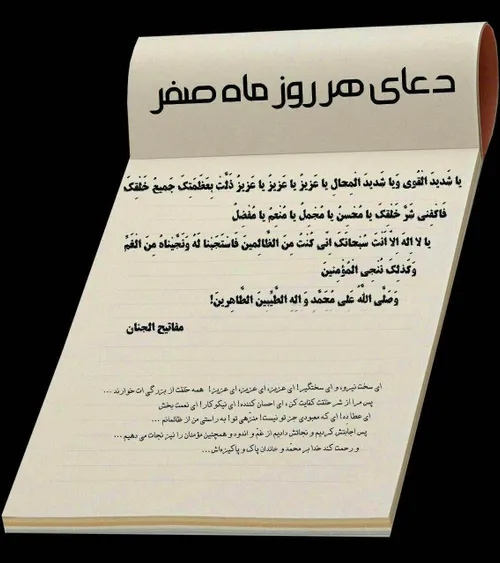 دعای هر روز ماه صفر
یا شَدیدَ الْقُوی وَیا شَدیدَ الْمِحالِ یا عَزیزُ یا عَزیزُ یا عَزیزُ ذَلَّتْ بِعَظَمَتِکَ جَمیعُ خَلْقِکَ
فَاکْفِنی شَرَّ خَلْقِکَ یا مُحْسِنُ یا مُجْمِلُ یا مُنْعِمُ یا مُفْضِلُ
یا لا اِلهَ اِلاّ اَنْتَ سُبْحانَکَ اِنّی کُنْتُ مِنَ الظّالِمینَ فَاسْتَجَبْنا لَهُ وَنَجَّیْناهُ مِنَ الْغَمِّ
وَکَذلِکَ نُنْجِی الْمُؤْمِنینَ
وَصَلَّی اللّهُ عَلی مُحَمَّدٍ وَ الِهِ الطَّیِّبینَ الطّاهِرینَ!
مفاتیح الجنان
ای سخت نیرو، و ای سختگیر! ای عزیز، ای عزیز، ای عزیز! همه خلقت از بزرگی ات خوارند ...
پس مرا از شر خلقت کفایت کن، ای احسان کننده! ای نیکوکار! ای نعمت بخش
ای عطا ده! ای که معبودی جز تو نیست! منزّهی تو! به راستی من از ظالمانم ...
پس اجابتش کردیم و نجاتش دادیم از غم و اندوه و همچنین مؤمنان را نیز نجات می دهیم ...
و رحمت کند خدا بر محمّد و خاندان پاک و پاکیزه‌اش...